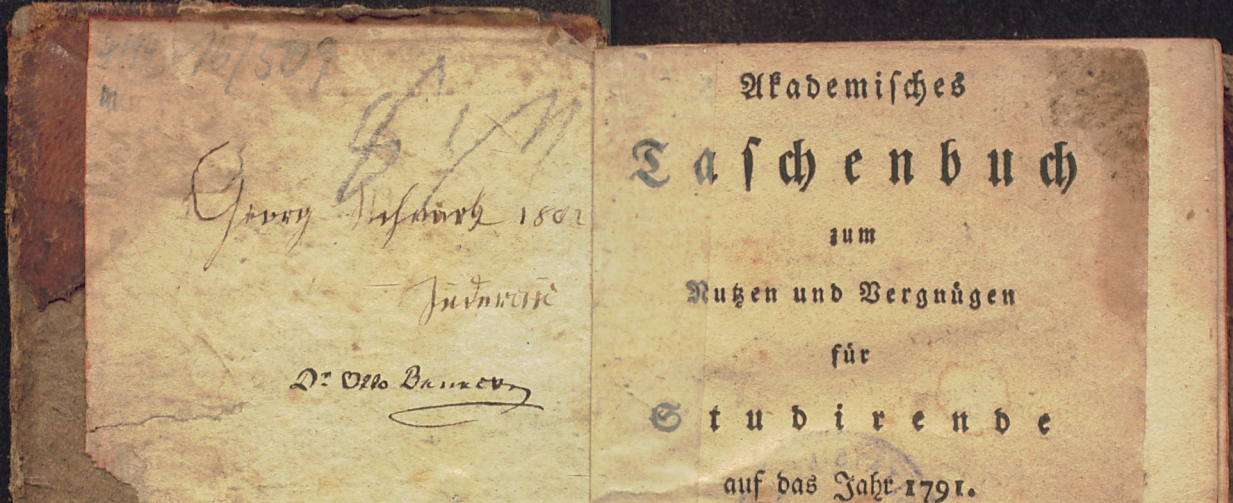 16/509
Georg Schwartz 1802
Dr Otto
Akademisches
Taschenbuch
zum
Nutzen und Vergnügen
für
Studirende
auf das Jahr 1791.